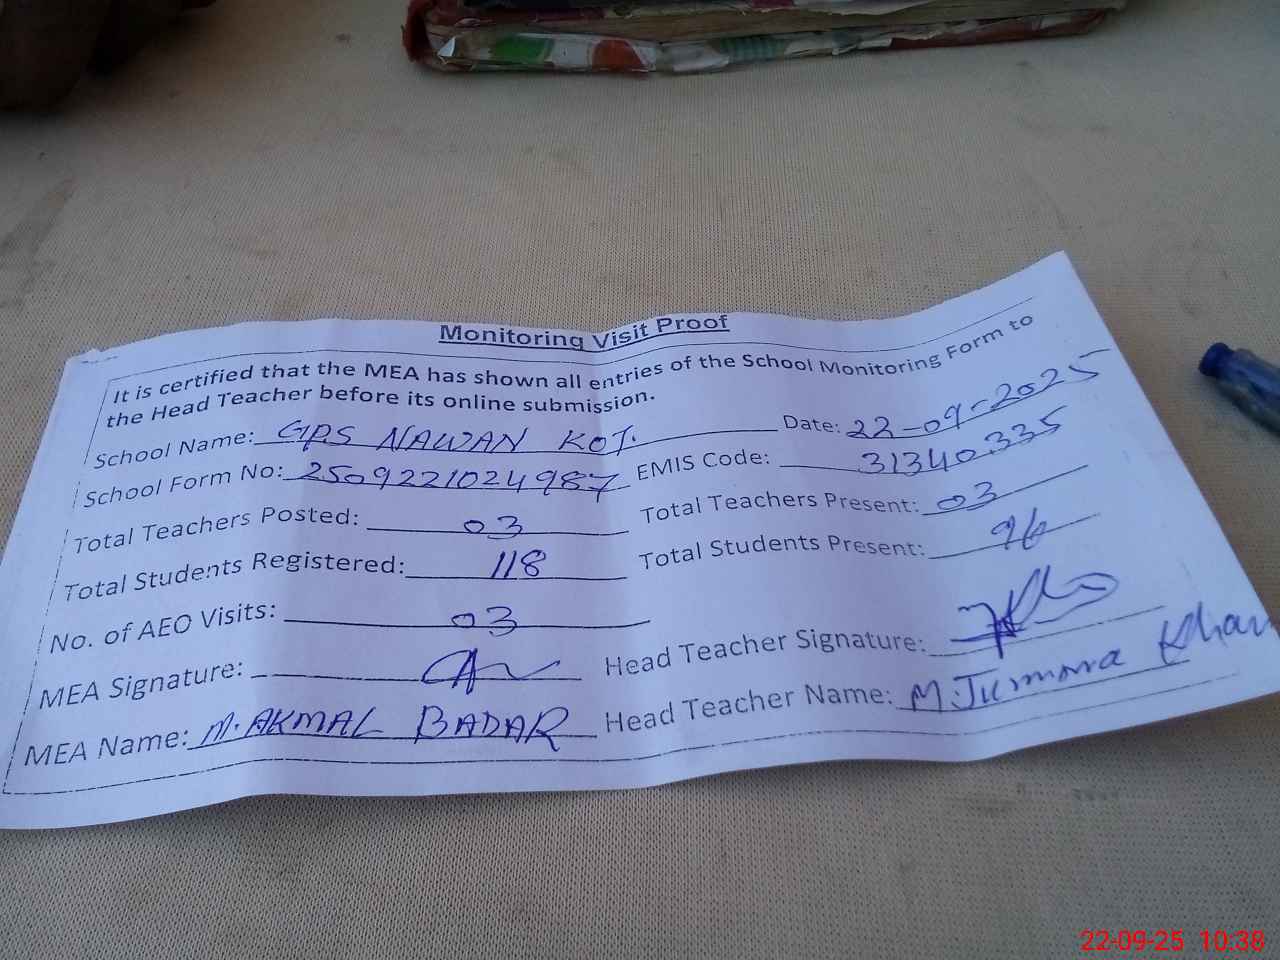 Monitoring Visit Proof
It is certified that the MEA has shown all entries of the School Monitoring Form to
the Head Teacher before its online submission.
School Name: GPS NAWAN KOT. Date: 22-09-2025
School Form No: 2509221024987 EMIS Code: 31340335
Total Teachers Posted: 03 Total Teachers Present: 03
Total Students Registered: 118 Total Students Present: 96
No. of AEO Visits: 03
MEA Signature: Head Teacher Signature:
MEA Name: M. AKMAL BADAR Head Teacher Name: M. Jumma Khan
22-09-25 10:38